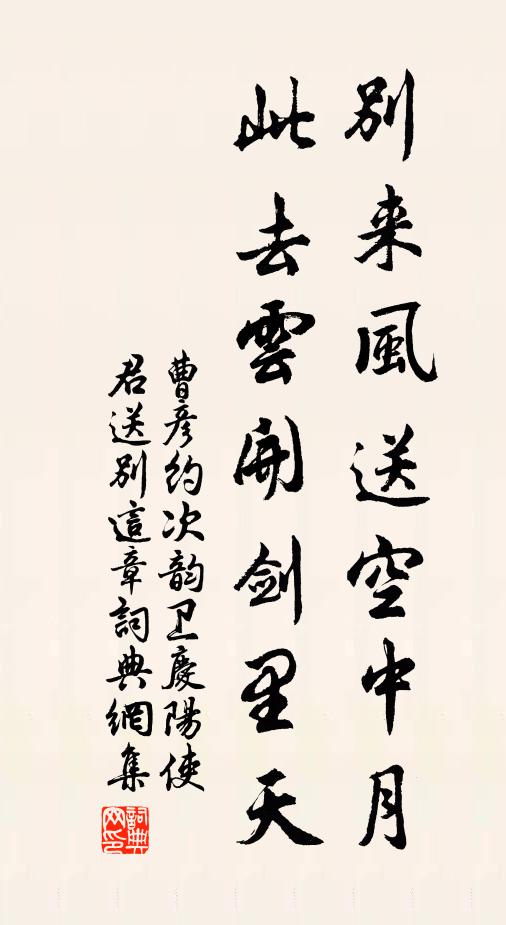 别来風送空中月
此去雲開剑里天
曹彦约次韵卫慶陽使
君送别這章詞典網集
詞典網印